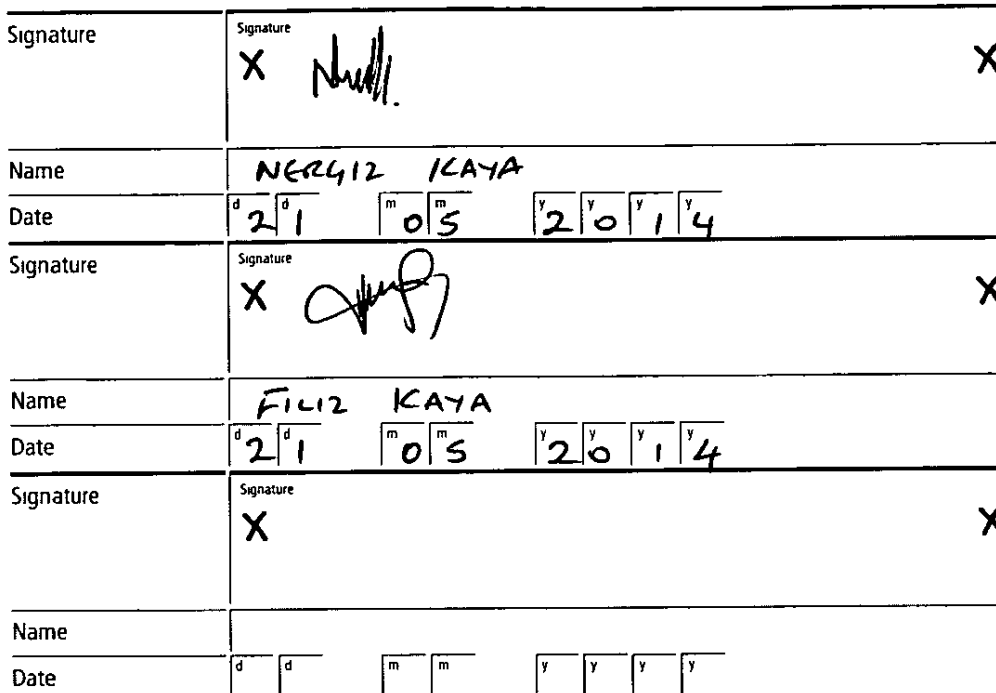 Signature Signature
X X
Name NERGIZ KAYA
Date d 2 d 1 m 0 m 5 y 2 y 0 y 1 y 4
Signature Signature
X X
Name FILIZ KAYA
Date d 2 d 1 m 0 m 5 y 2 y 0 y 1 y 4
Signature Signature
X X
Name
Date d d m m y y y y